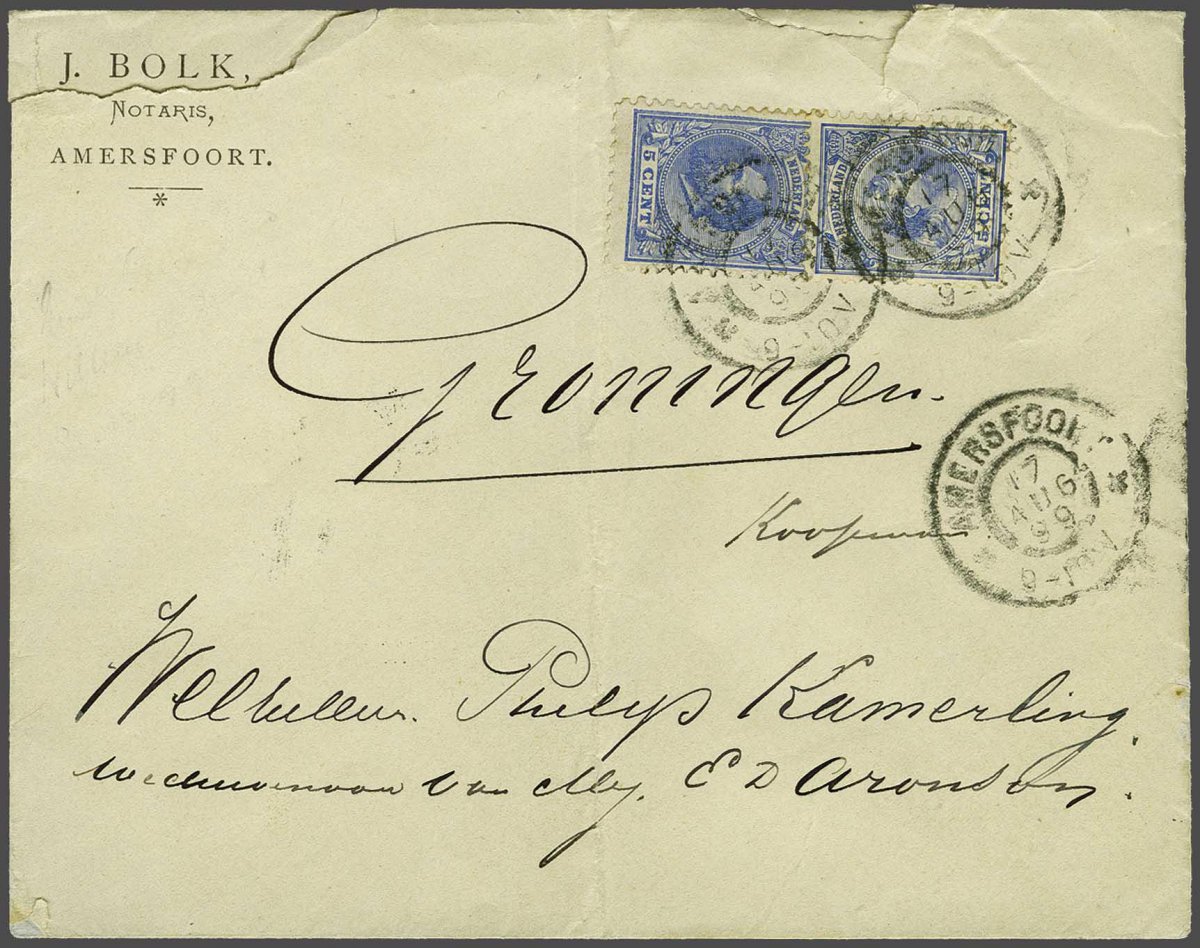 J. BOLK,
NOTARIS,
AMERSFOORT.
5 CENT NEDERLAND
NEDERLAND 5 CENT
17 AUG
9-10V
9-10V
Groningen.
AMERSFOORT
17
AUG
99
9-10V
Koopman
Philips Kamerling.
van Mej. E D Aronson.